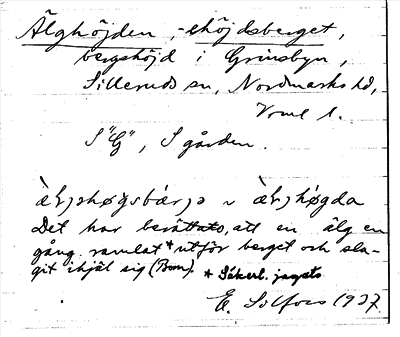 Älghöjden, -ehöjdsberget,
bergshöjd i Grinsbyn,
Silleruds sn, Nordmarks hd,
Vrml l.
S "G", S gården.
Det har berättats, att en älg en
gång ramlat * utför berget och sla-
git ihjäl sig (Bom). * Säkerl. jagats
E. Solfors 1937